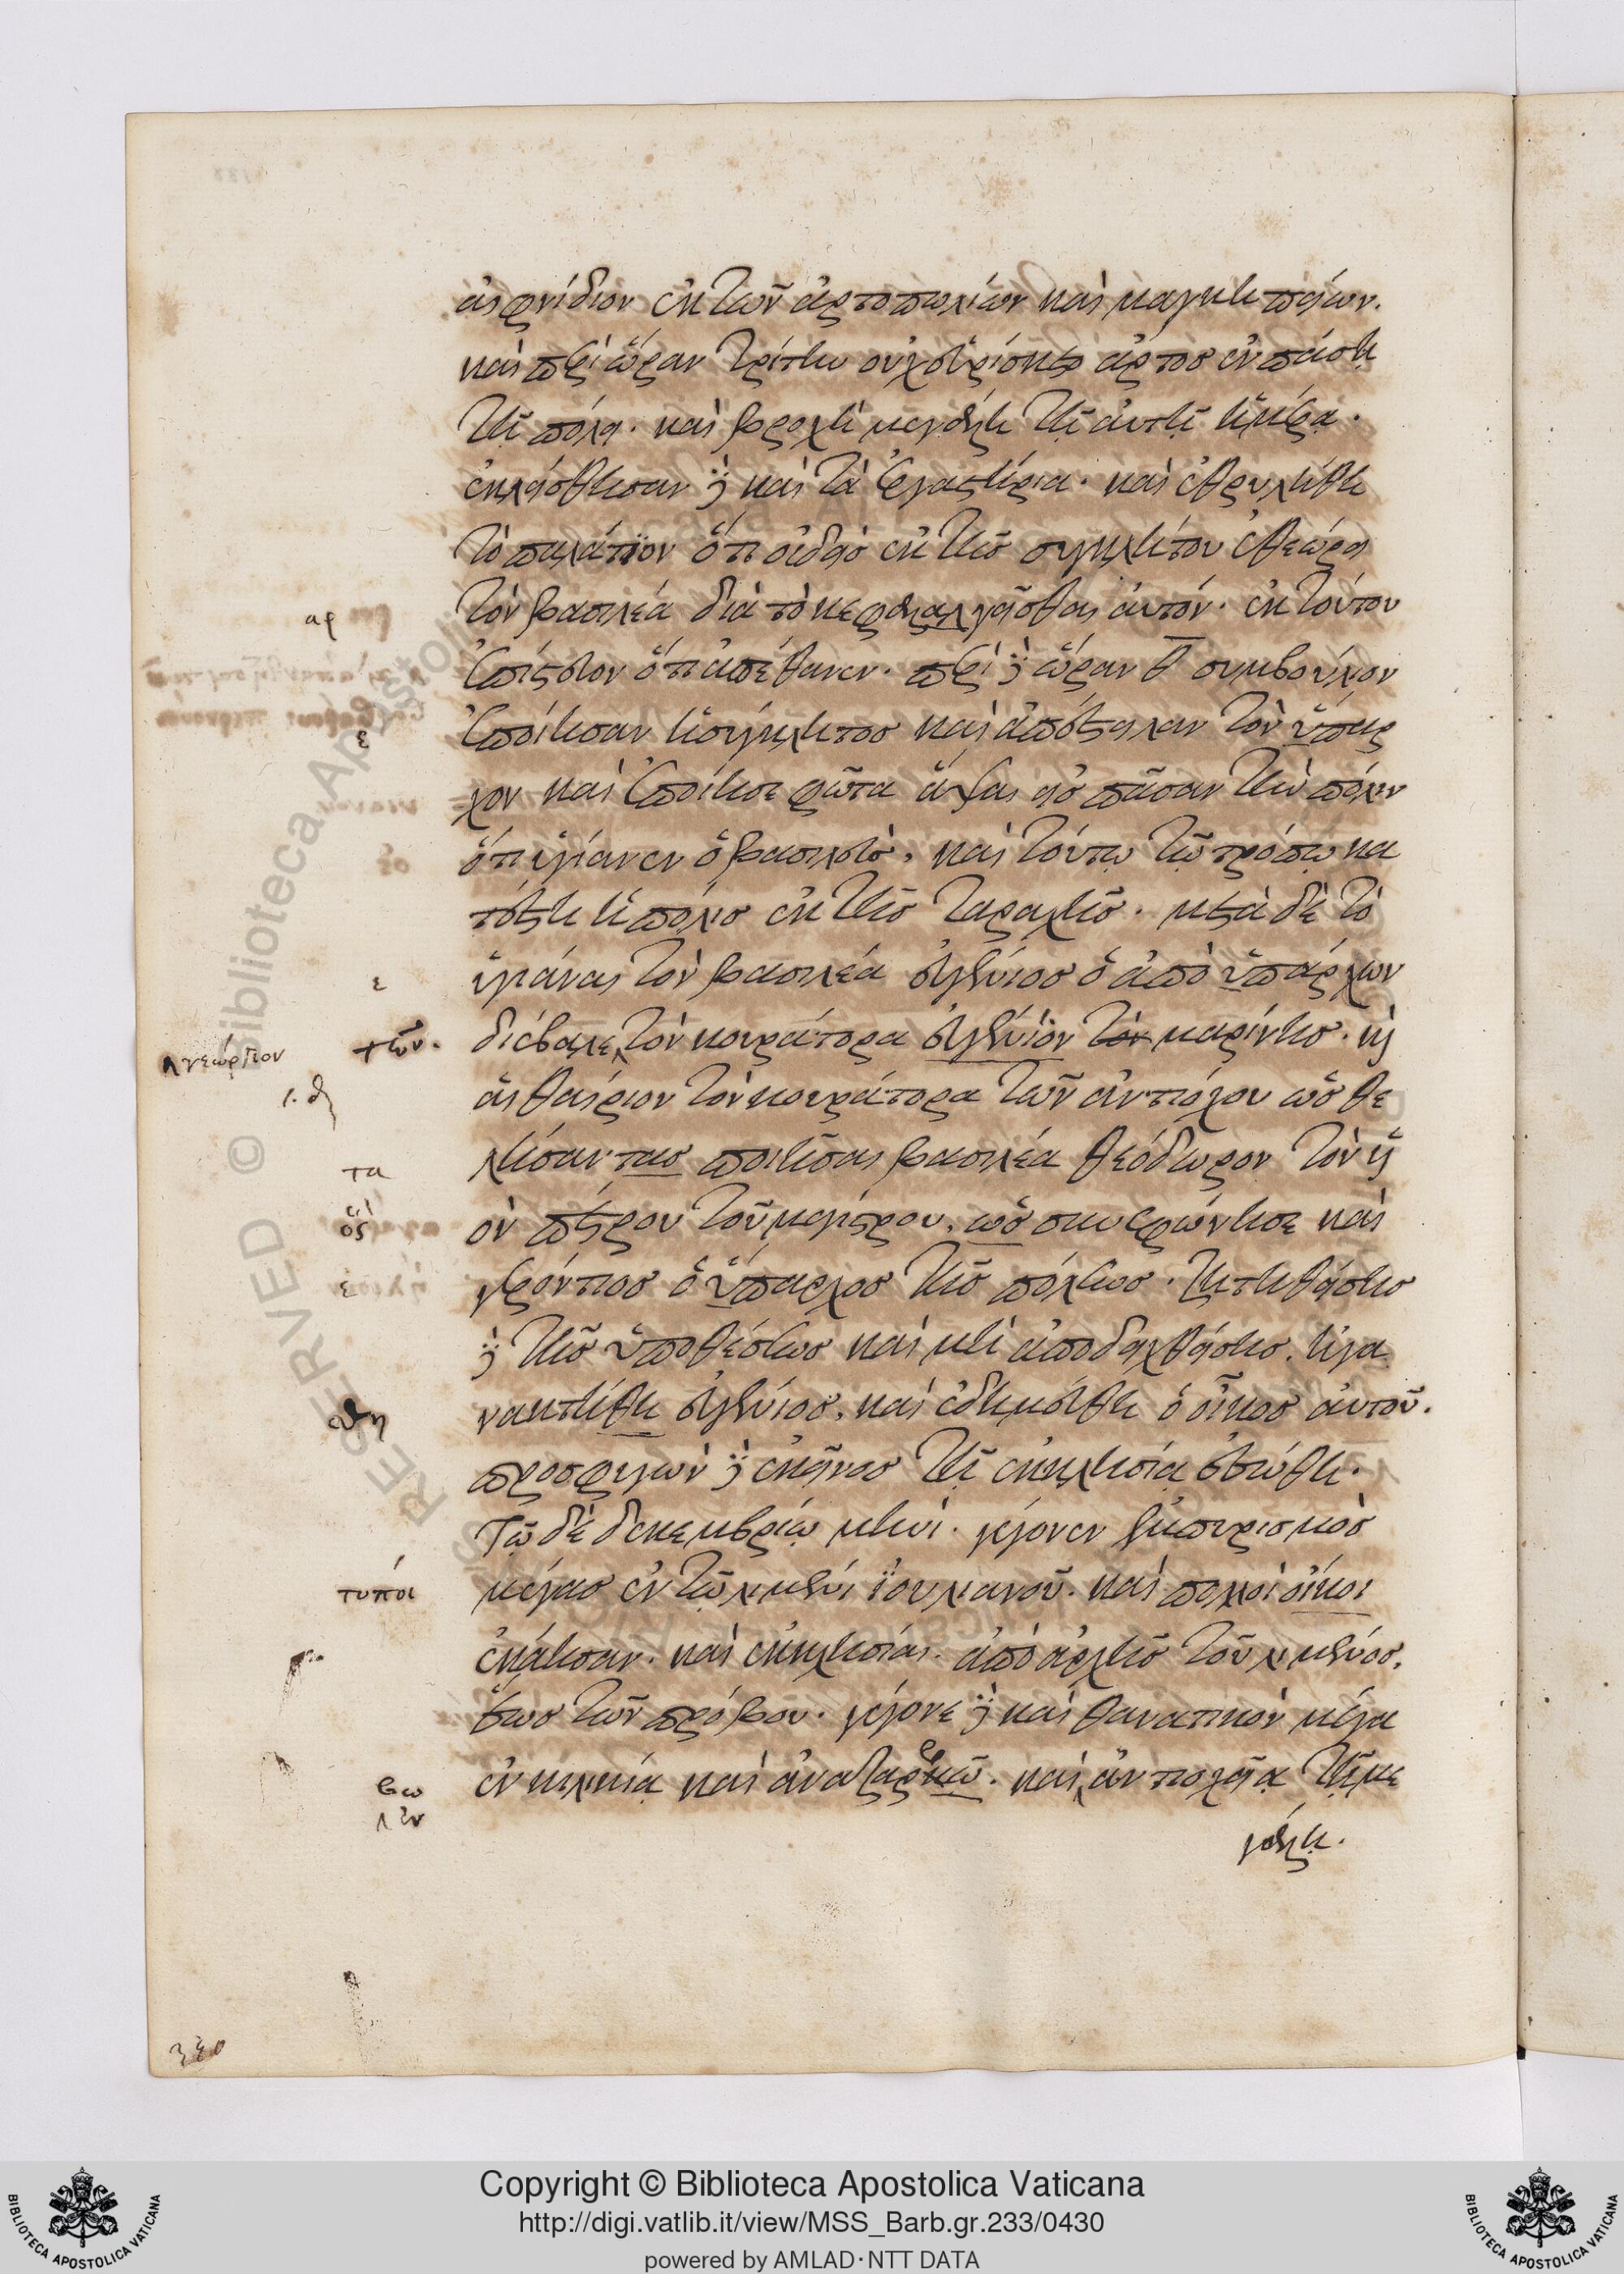 αἰφνίδιον ἐκ τῶν ἀρτοπωλίων καὶ μαγκηπείων.
καὶ περὶ ὥραν τρίτην οὐχ εὑρίσκετο ἄρτος ἐν πάσῃ
τῇ πόλει. καὶ βροχὴ μεγάλη τῇ αὐτῇ ἡμέρᾳ.
ἐκλείσθησαν δὲ καὶ τὰ ἐργαστήρια. καὶ ἐθρυλήθη
τὸ παλάτιον ὅτι οὐδεὶς ἐκ τῆς συγκλήτου ἐθεώρει
τὸν βασιλέα διὰ τὸ κεφαλαλγεῖσθαι αὐτόν. ἐκ τούτου
ἐπίστευον ὅτι ἀπέθανεν. περὶ δὲ ὥραν θ συμβούλιον
ἐποίησαν ἡ σύγκλητος καὶ ἀπέστειλαν τὸν ὕπαρ
χον καὶ ἐποίησε φῶτα ἅψαι εἰς πᾶσαν τὴν πόλιν
ὅτι ὑγίανεν ὁ βασιλεύς. καὶ τούτῳ τῷ τρόπῳ κα
τέστη ἡ πόλις ἐκ τῆς ταραχῆς. μετὰ δὲ τὸ
ὑγιάναι τὸν βασιλέα εὐγένιος ὁ ἀπὸ ὑπάρχων
διέβαλε τὸν κουράτορα εὐγένιον τὸν μαρίνης. καὶ
αἰθαίριον τὸν κουράτορα τῶν ἀντιόχου ὡς θε
λήσαντας ποιῆσαι βασιλέα θεόδωρον τὸν υἱ
ὸν πέτρου τοῦ μαγίστρου. ὡς συνεφώνησε καὶ
γερόντιος ὁ ὕπαρχος τῆς πόλεως. ζητηθείσης
δὲ τῆς ὑποθέσεως καὶ μὴ ἀποδειχθείσης. ἠγα
νακτήθη εὐγένιος. καὶ ἐδημεύθη ὁ οἶκος αὐτοῦ.
προσφυγὼν δὲ ἐκεῖνος τῇ ἐκκλησίᾳ ἐσώθη.
τῷ δὲ δεκεμβρίῳ μηνὶ. γέγονεν ἐμπυρισμὸς
μέγας ἐν τῷ λιμένι ἰουλιανοῦ. καὶ πολλοὶ οἶκοι
ἐκάησαν. καὶ ἐκκλησίαι. ἀπὸ ἀρχῆς τοῦ λιμένος.
ἕως τῶν πρόβου. γέγονε δὲ καὶ θανατικὸν μέγα
ἐν κιλικίᾳ καὶ ἀναζαρβῷ. καὶ ἀντιοχείᾳ τῇ με
γάλῃ.
αρ
ε
ε
των.
γεώργιον
τα
ος
ε
θη
τόποι
βω
ἐν
330
RESERVED © Biblioteca Apostolica Vaticana
Copyright © Biblioteca Apostolica Vaticana
http://digi.vatlib.it/view/MSS_Barb.gr.233/0430
powered by AMLAD·NTT DATA
BIBLIOTECA APOSTOLICA VATICANA
BIBLIOTECA APOSTOLICA VATICANA